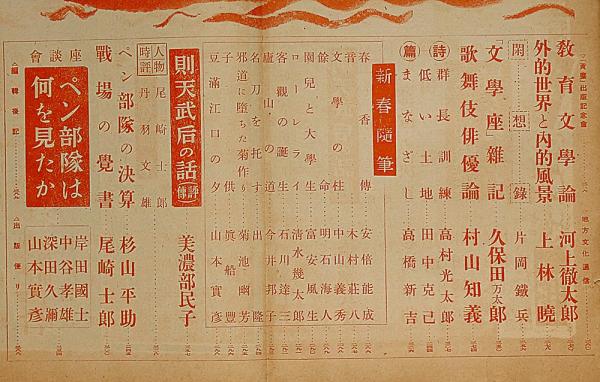 △青葉出版記念會
地方文化通信
教育文學論 河上徹太郎
外的世界と内的風景 上林曉
閑想錄 片岡鐵兵
「文學座」雜記 久保田万太郎
歌舞伎俳優論 村山知義
(詩篇)
群長訓練 高村光太郎
低い土地 田中克己
まなざし 高橋新吉
新春隨筆
春香傳 安倍能成
音 木村莊八
文學の柱 中山義秀
餘命 明石海人
園兒と大學生 富安風生
ローレライ 清水幾太郎
客觀の誕生 石川達三
廬山の道 今井邦子
名刀を托す 出隆
邪道に墮ちた菊作り 菊池幽芳
子供 眞船豐
豆滿江口の夕 山本實彦
則天武后の話(評傳) 美濃部民子
人物時評
尾崎士郎
丹羽文雄
ペン部隊の決算 杉山平助
戰場の覺書 尾崎士郎
座談會
ペン部隊は何を見たか
岸田國士
中谷孝雄
深田久彌
山本實彦
△編輯後記
△出版便り